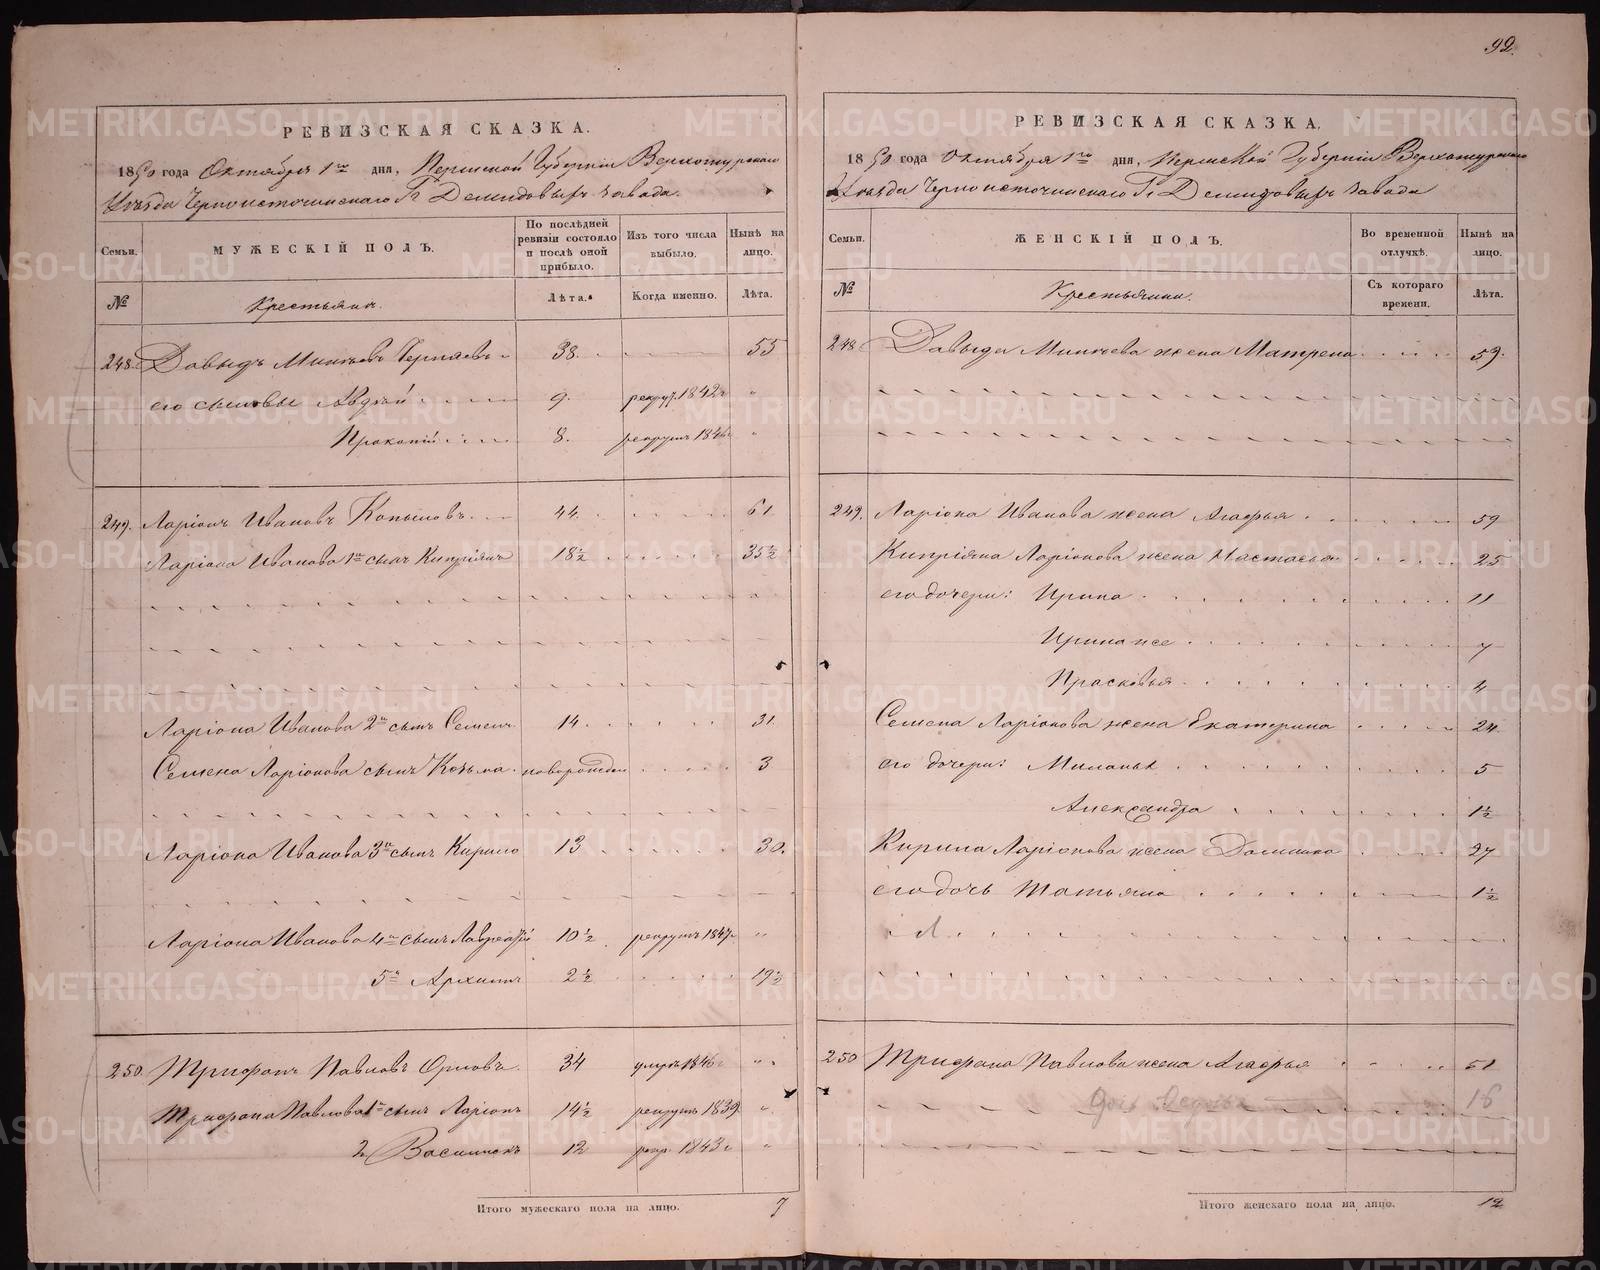 92.
РЕВИЗСКАЯ СКАЗКА.
1850 года Октября 1го дня, Пермской Губерніи Верхотурскаго
Уѣзда Черноисточинскаго Гг Демидовыхъ завода.
Семьи. МУЖЕСКІЙ ПОЛЪ. По послѣдней ревизіи состояло и послѣ оной прибыло. Изъ того числа выбыло. Нынѣ на лицо.
№ Крестьяне. Лѣта. Когда именно. Лѣта.
248. Давыдъ Минѣевъ 38. 55
его сыновья Авдѣй 9. рекрут. 1842г "
Прокопій 8. рекрутъ 1846г "
249. Ларіонъ Ивановъ Копыловъ 44. 61
Ларіона Иванова 1й сынъ Кипріянъ 18½ 35½
Ларіона Иванова 2й сынъ Семенъ 14. 31.
Семена Ларіонова сынъ Козьма новорожден 3
Ларіона Иванова 3й сынъ Кирило 13 30.
Ларіона Иванова 4й сынъ Лаврентій 10½ рекрутъ 1847г "
5й Архипъ 2½ 19½
250. Трифонъ Павловъ Орловъ. 34 умеръ 1846г "
Трифона Павлова 1й сынъ Ларіонъ 14½ рекрутъ 1839г "
2й Василій 12 рекр. 1843г "
Итого мужескаго пола на лицо. 7
РЕВИЗСКАЯ СКАЗКА.
1850 года Октября 1го дня, Пермской Губерніи Верхотурскаго
Уѣзда Черноисточинскаго Гг Демидовыхъ завода
Семьи. ЖЕНСКІЙ ПОЛЪ. Во временной отлучкѣ. Нынѣ на лицо.
№ Крестьянки. Съ котораго времени. Лѣта.
248 Давыда Минѣева жена Матрена 59.
249. Ларіона Иванова жена Агафья 59
Кипріяна Ларіонова жена Настасья 25
его дочери: Ирина 11
Ирина же 7
Прасковья 4
Семена Ларіонова жена Екатерина 24.
его дочери: Миланья 5
Александра 1½
Кирила Ларіонова жена Домника 27
его дочь Татьяна 1½
250 Трифона Павлова жена Агафья 51
дочь 18
Итого женскаго пола на лицо. 12
METRIKI.GASO-URAL.RU